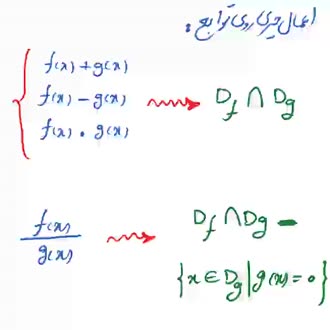 اعمال جبری روی توابع:
f(x) + g(x)
f(x) - g(x) ⟿ D_f ∩ D_g
f(x) . g(x)
f(x)/g(x) ⟿ D_f ∩ D_g -
{x ∈ D_g | g(x) = 0}